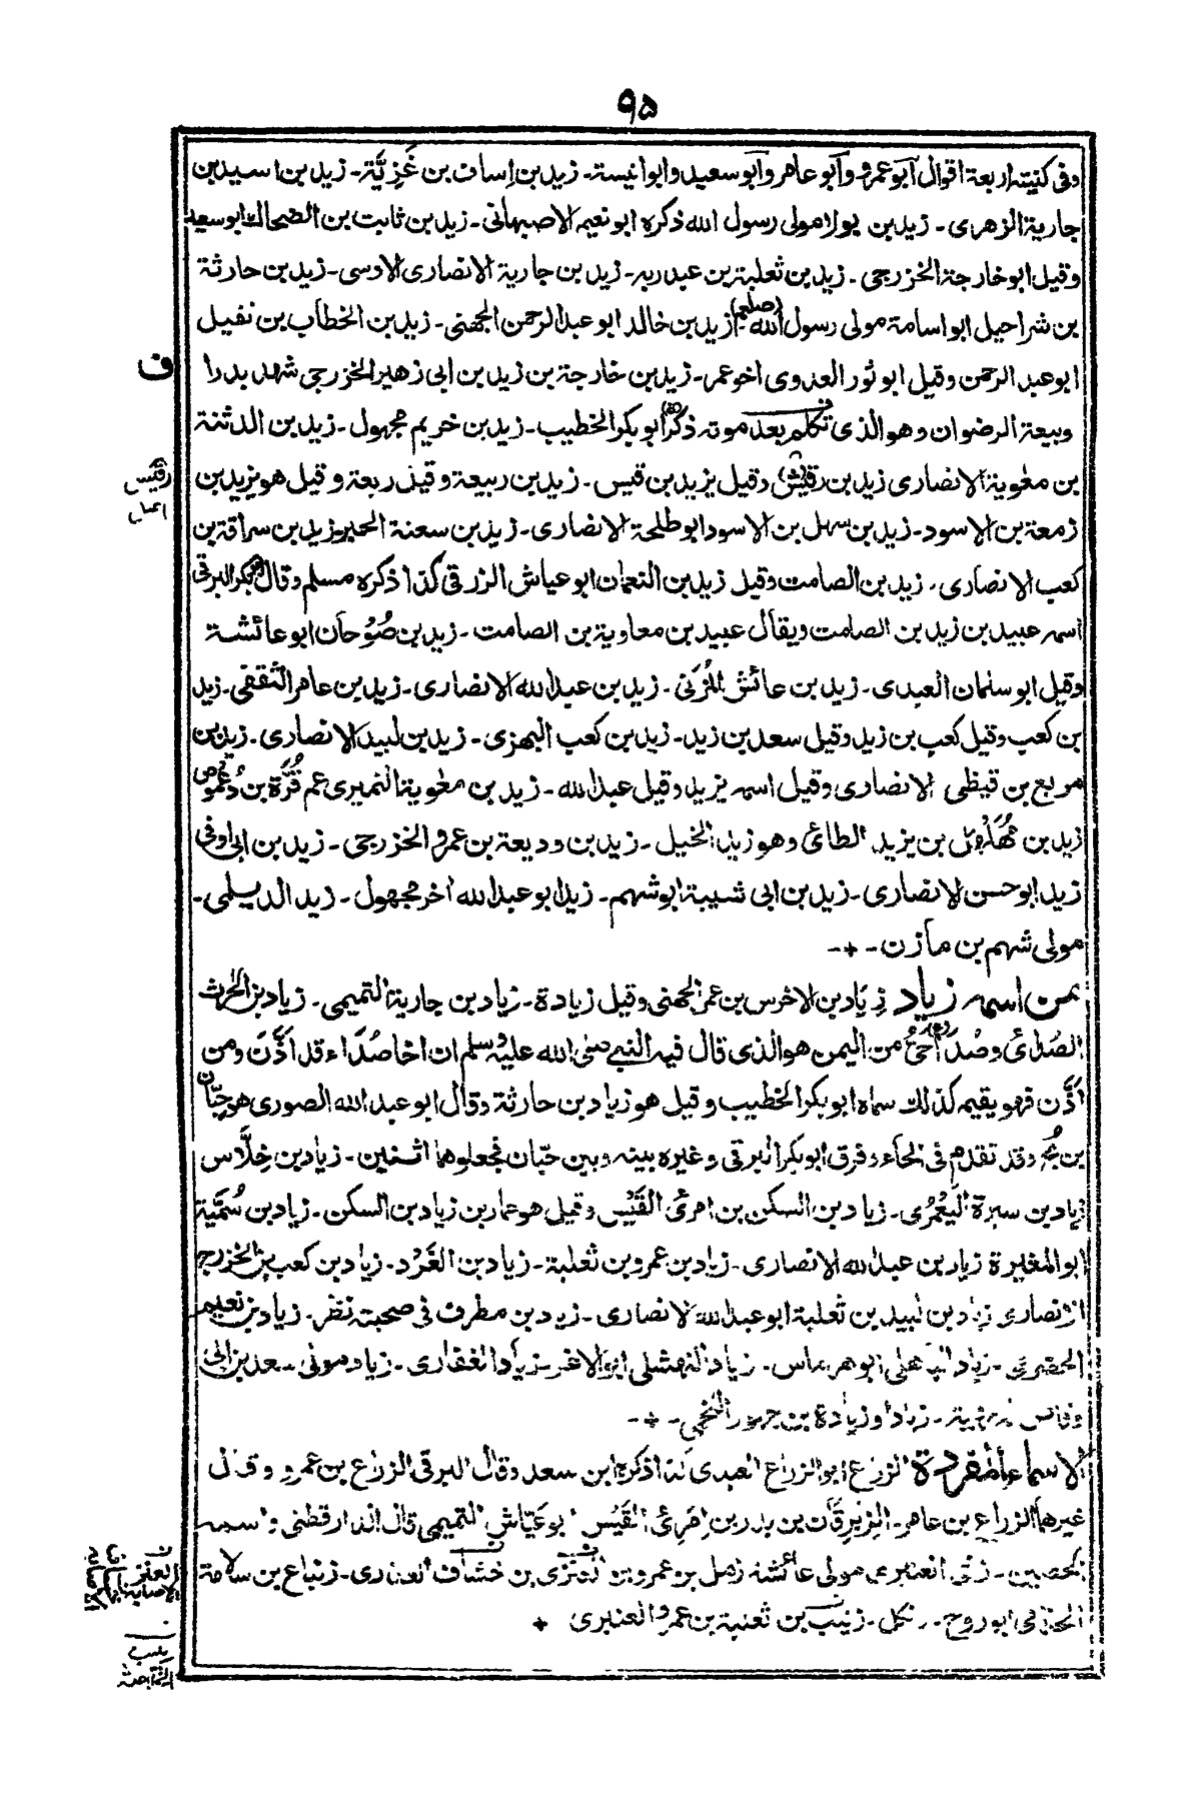 ٩٥
وفى كنيته اربعة اقوال ابو عمرو وابو عامر وابو سعيد وابو انيسة ـ زيد بن إساف بن غَزِيَّة ـ زيد بن اسيد بن
جارية الزهرى ـ زيد بن بولا مولى رسول الله ذكره ابو نعيم الاصبهانى ـ زيد بن ثابت بن الضحاك ابو سعيد
وقيل ابو خارجة الخزرجى ـ زيد بن ثعلبة بن عبد ربه ـ زيد بن جارية الانصارى الاوسى ـ زيد بن حارثة
بن شراحيل ابو اسامة مولى رسول الله (صلعم) زيد بن خالد ابو عبد الرحمن الجهنى ـ زيد بن الخطاب بن نفيل
ابو عبد الرحمن وقيل ابو ثور العدوى اخو عمر ـ زيد بن خارجة بن زيد بن ابى زهير الخزرجى شهد بدرا
ف
وبيعة الرضوان وهو الذى تكلم بعد موته ذكره ابو بكر الخطيب ـ زيد بن خريم مجهول ـ زيد بن الدثنة
بن معٰوية الانصارى زيد بن رقيش وقيل يزيد بن قيس ـ زيد بن ربيعة وقيل ربعة وقيل هو يزيد بن
رقيس
زمعة بن الاسود ـ زيد بن سهل بن الاسود ابو طلحة الانصارى ـ زيد بن سعنة الحبر وزيد بن سراقة بن
كعب الانصارى ـ زيد بن الصامت وقيل زيد بن النعمان ابو عياش الزرقى كذا ذكره مسلم وقال ابو بكر البرقى
اسمه عبيد بن زيد بن الصامت ويقال عبيد بن معاوية بن الصامت ـ زيد بن صُوْحان ابو عائشة
وقيل ابو سلمان العبدى ـ زيد بن عائش المُزَنى ـ زيد بن عبد الله الانصارى ـ زيد بن عامر الثقفى ـ زيد
بن كعب وقيل كعب بن زيد وقيل سعد بن زيد ـ زيد بن كعب البهزى ـ زيد بن لبيد الانصارى ـ زيد بن
مربع بن قيظى الانصارى وقيل اسمه يزيد وقيل عبد الله ـ زيد بن معٰوية النميرى عم قُرَّة بن دُعْموص
زيد بن مُهَلْهِل بن يزيد الطائى وهو زيد الخيل ـ زيد بن وديعة بن عمرو الخزرجى ـ زيد بن ابى اوفى
زيد ابو حسن الانصارى ـ زيد بن ابى شيبة ابو شهم ـ زيد ابو عبد الله اخر مجهول ـ زيد الديلمى ـ
مولى شهم بن مازن ـ + ـ
من اسمه زياد زياد بن الاخرس بن عمرو الجهنى وقيل زيادة ـ زياد بن جارية التميمى ـ زياد بن الحٰرث
الصُدائى وصُدَاء حىٌّ من اليمن هو الذى قال فيه النبى صلى الله عليه وسلم ان اخا صُدَاء قد اذَّنَ ومن
اَذَّن فهو يقيم كذلك سماه ابو بكر الخطيب وقيل هو زياد بن حارثة وقال ابو عبد الله الصورى هو حِبَّان
بن بُح وقد تقدم فى الحاء وفرق ابو بكر البرقى وغيره بينه وبين حبّان فجعلوهما اثنين ـ زياد بن خِلَّاس
زياد بن سبرة اليَعْمُرى ـ زياد بن السكن بن امرئ القَيْس وقيل هو عمار بن زياد بن السكن ـ زياد بن سُمَيَّة
ابو المغيرة زياد بن عبد الله الانصارى ـ زياد بن عمرو بن ثعلبة ـ زياد بن الغَرْد ـ زياد بن كعب بن الخزرج
الانصارى زياد بن لبيد بن ثعلبة ابو عبد الله الانصارى ـ زياد بن مطرف فى صحبته نظر ـ زياد بن نعيم
الحضرمى ـ زياد الباهلى ابو هرماس ـ زياد النهشلى ابو الاغر ـ زياد الغفارى ـ زياد مولى سعد بن ابى
وقاص ـ زياد او زيادة بن جهور اللخمى ـ + ـ
الاسماء المفردة الزراع ابو الزراع العبدى كذا ذكره ابن سعد وقال البرقى الزراع بن عمرو وقال
غيرهما الزراع بن عامر ـ الزِبْرِقَان بن بدر بن اِمْرِئ القَيْس ابو عَيّاش التميمى قال الدارقطنى واسمه
الحصين ـ زنى العنبرى مولى عائشة زمل بن عمرو بن العنزى بن خشاف العذارى ـ زنباع بن سلامة
العنز
الاصابة
الجذامى ابو روح ـ زنكل ـ زنيب بن ثعلبة بن عمرو العنبرى +